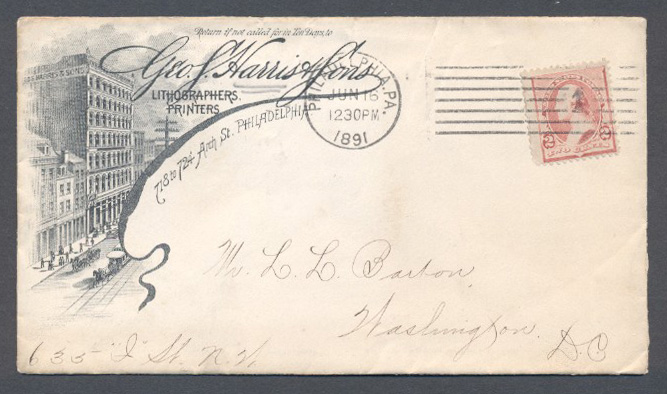 Return if not called for in Ten Days, to
Geo. S. Harris & Sons
GEO. S. HARRIS & SONS
LITHOGRAPHERS,
PRINTERS.
718 to 724 Arch St. PHILADELPHIA
PHILADELPHIA, PA.
JUN 16
1230PM
1891
1
2 2
TWO CENTS
Mr. L. L. Barton,
Washington.
D.C
633 "I" St. N.W.